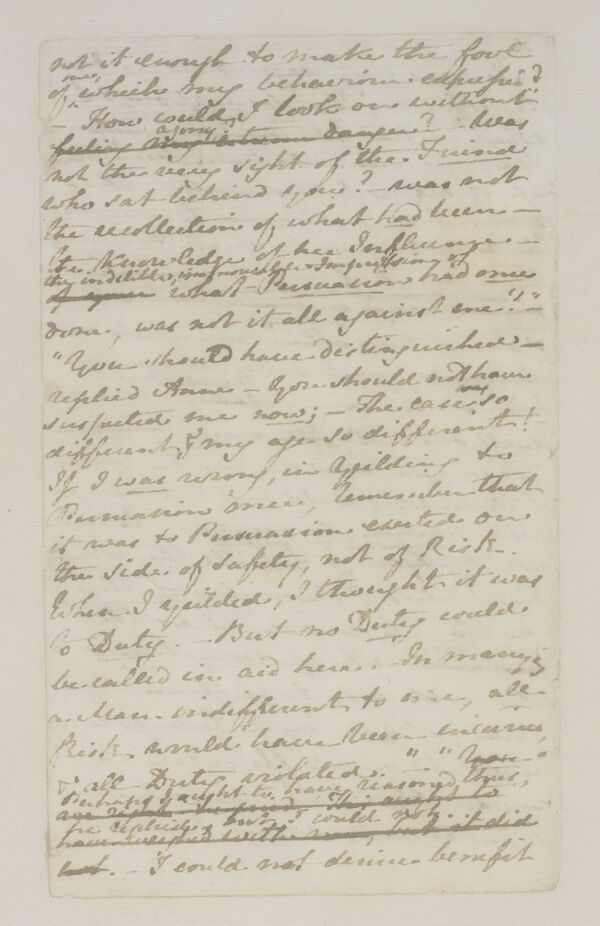 not it enough to make the fool
of me, which my behaviour expressed?
— How could I look on without
agony
feeling danger? — Was
not the very sight of the Friend
who sat behind you? — was not
the recollection of what had been —
the knowledge of her Influence —
the indelible, immoveable Impression of
what Persuasion had once
done, was not it all against me?" —
"You should have distinguished —
replied Anne — You should not have
suspected me now; — The case so
different, & my age so different!
If I was wrong, in yeilding to
Persuasion once, remember that
it was to Persuasion exerted on
the side of Safety, not of Risk.
When I yeilded, I thought it was
to Duty. — But no Duty could
be called in aid here. — In marrying
a Man indifferent to me, all
Risk would have been incurred,
& all Duty violated." — "You
Perhaps I ought to have reasoned thus,
he replied, but I could not. —
have with me, but it did
not. — I could not derive benefit